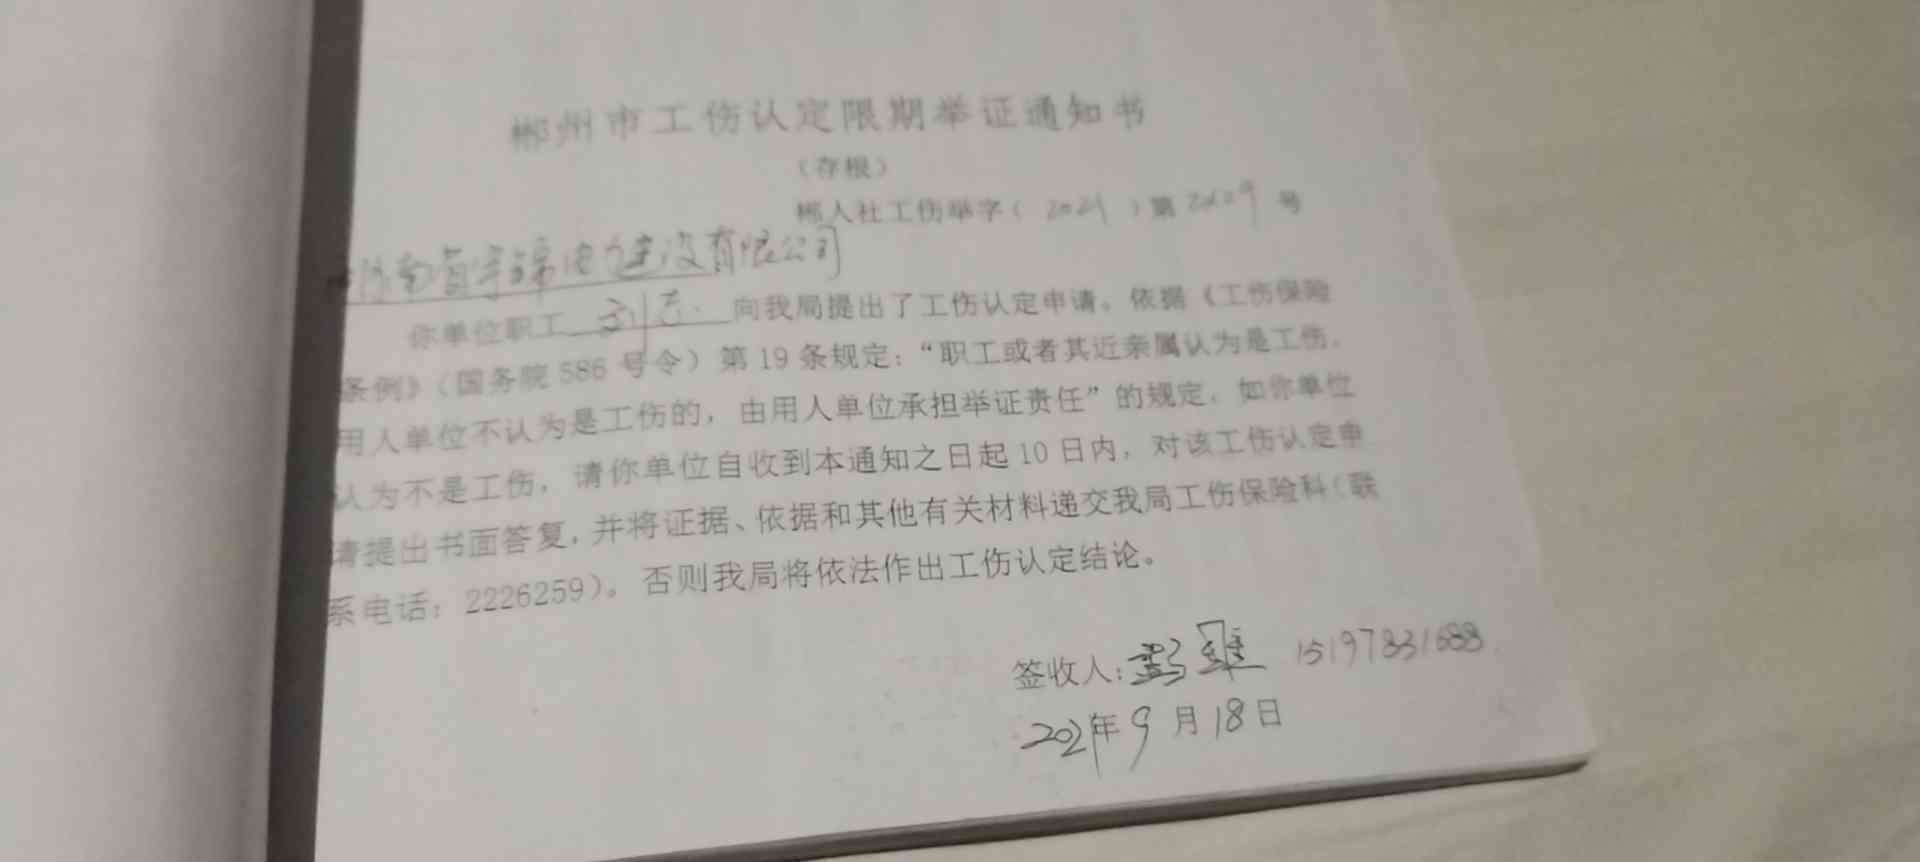 郴州市工伤认定限期举证通知书
（存根）
郴人社工伤举字（2021）第 号
湖南省宇锦电力建设有限公司
你单位职工 刘志 向我局提出了工伤认定申请。依据《工伤保险
条例》（国务院586号令）第19条规定：“职工或者其近亲属认为是工伤，
用人单位不认为是工伤的，由用人单位承担举证责任”的规定，如你单位
认为不是工伤，请你单位自收到本通知之日起10日内，对该工伤认定申
请提出书面答复，并将证据、依据和其他有关材料递交我局工伤保险科（联
系电话：2226259）。否则我局将依法作出工伤认定结论。
签收人： 15197831688
2021年9月18日